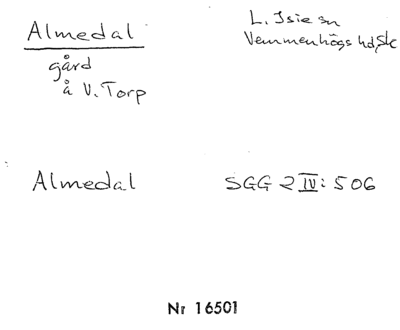 Almedal
gård
å V. Torp
L. Isie sn
Vemmenhögs hd, Sk
Almedal
SGG 2 IV: 506
Nr 16501